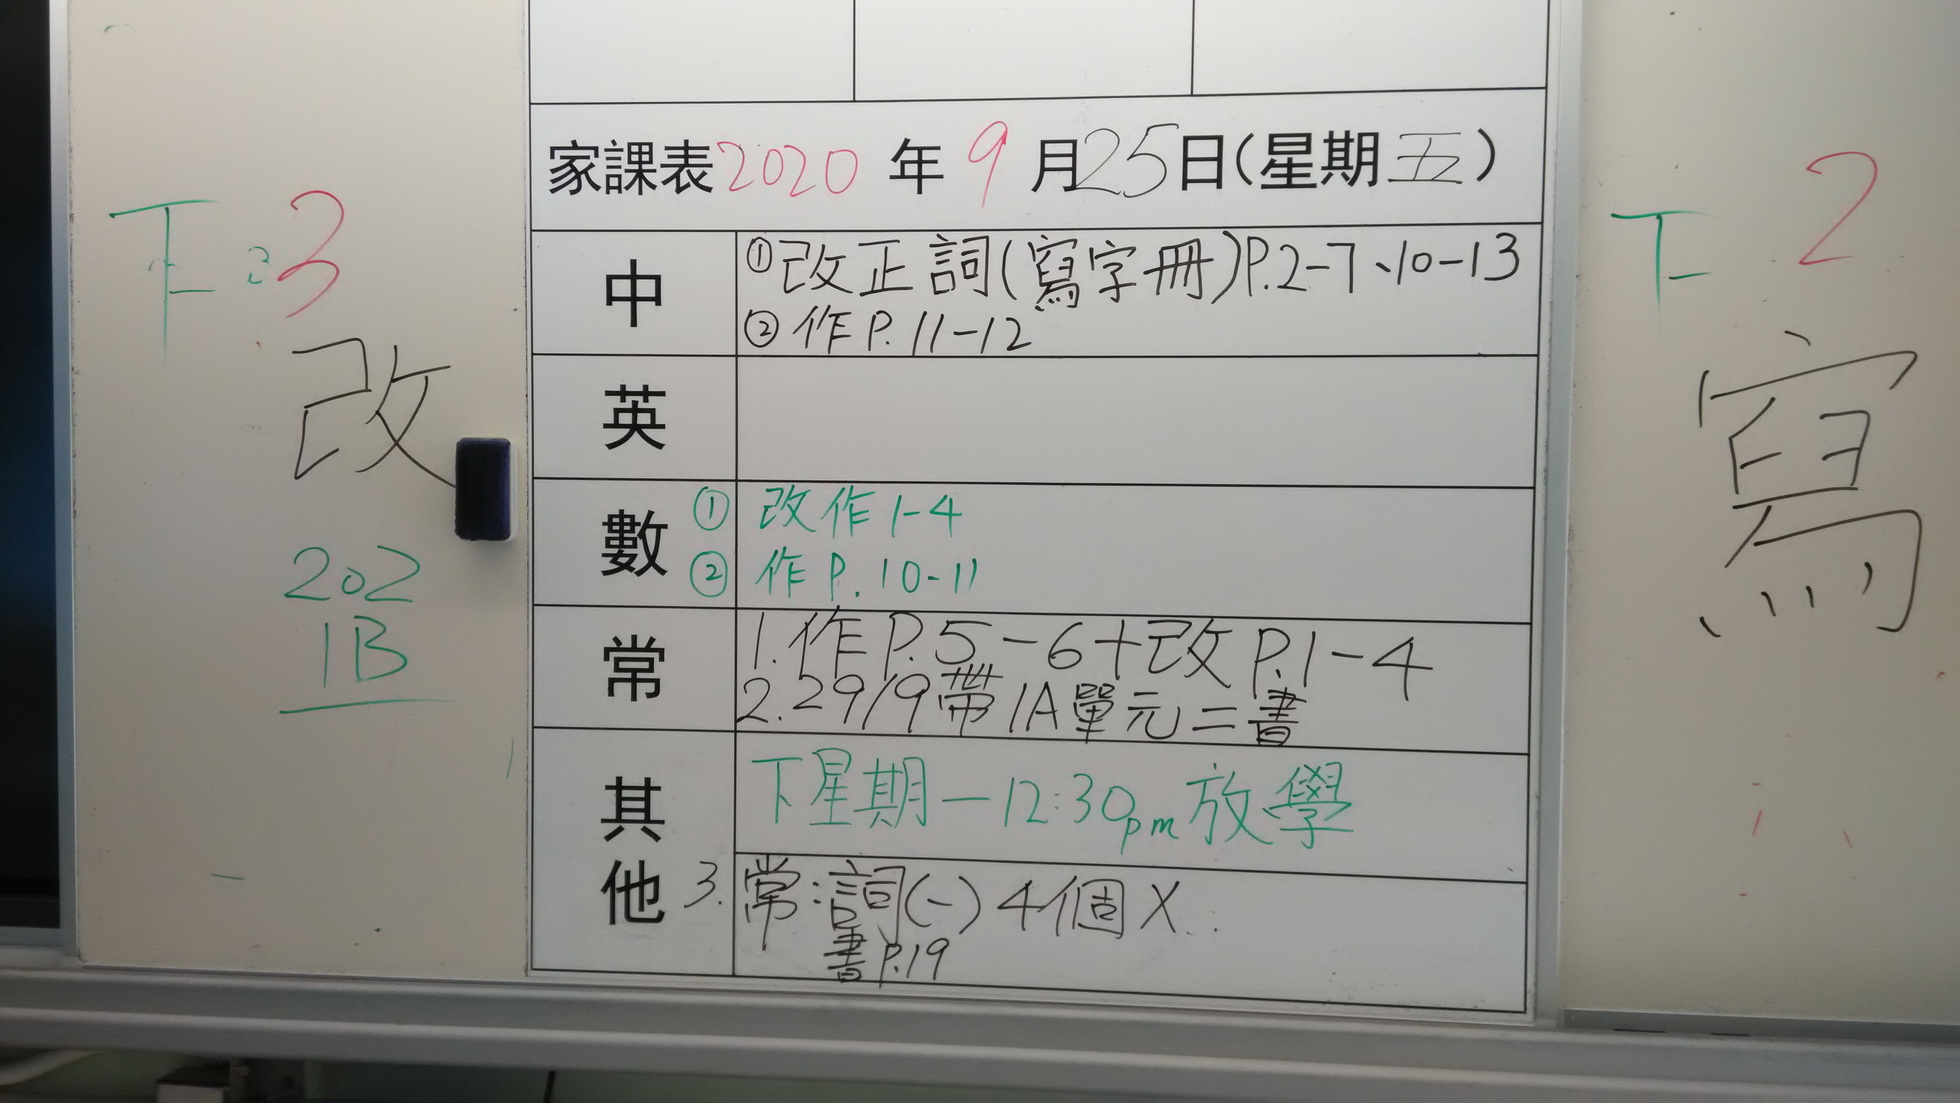 家課表2020年9月25日(星期五)
中
①改正詞(寫字冊)P.2-7、10-13
②作P.11-12
英
數
①改作1-4
②作P.10-11
常
1.作P.5-6+改P.1-4
2.29/9帶1A單元二書
其他
下星期一12:30pm放學
3.常:詞(一)4個X
書P.19
3
改
202
1B
下 2
寫